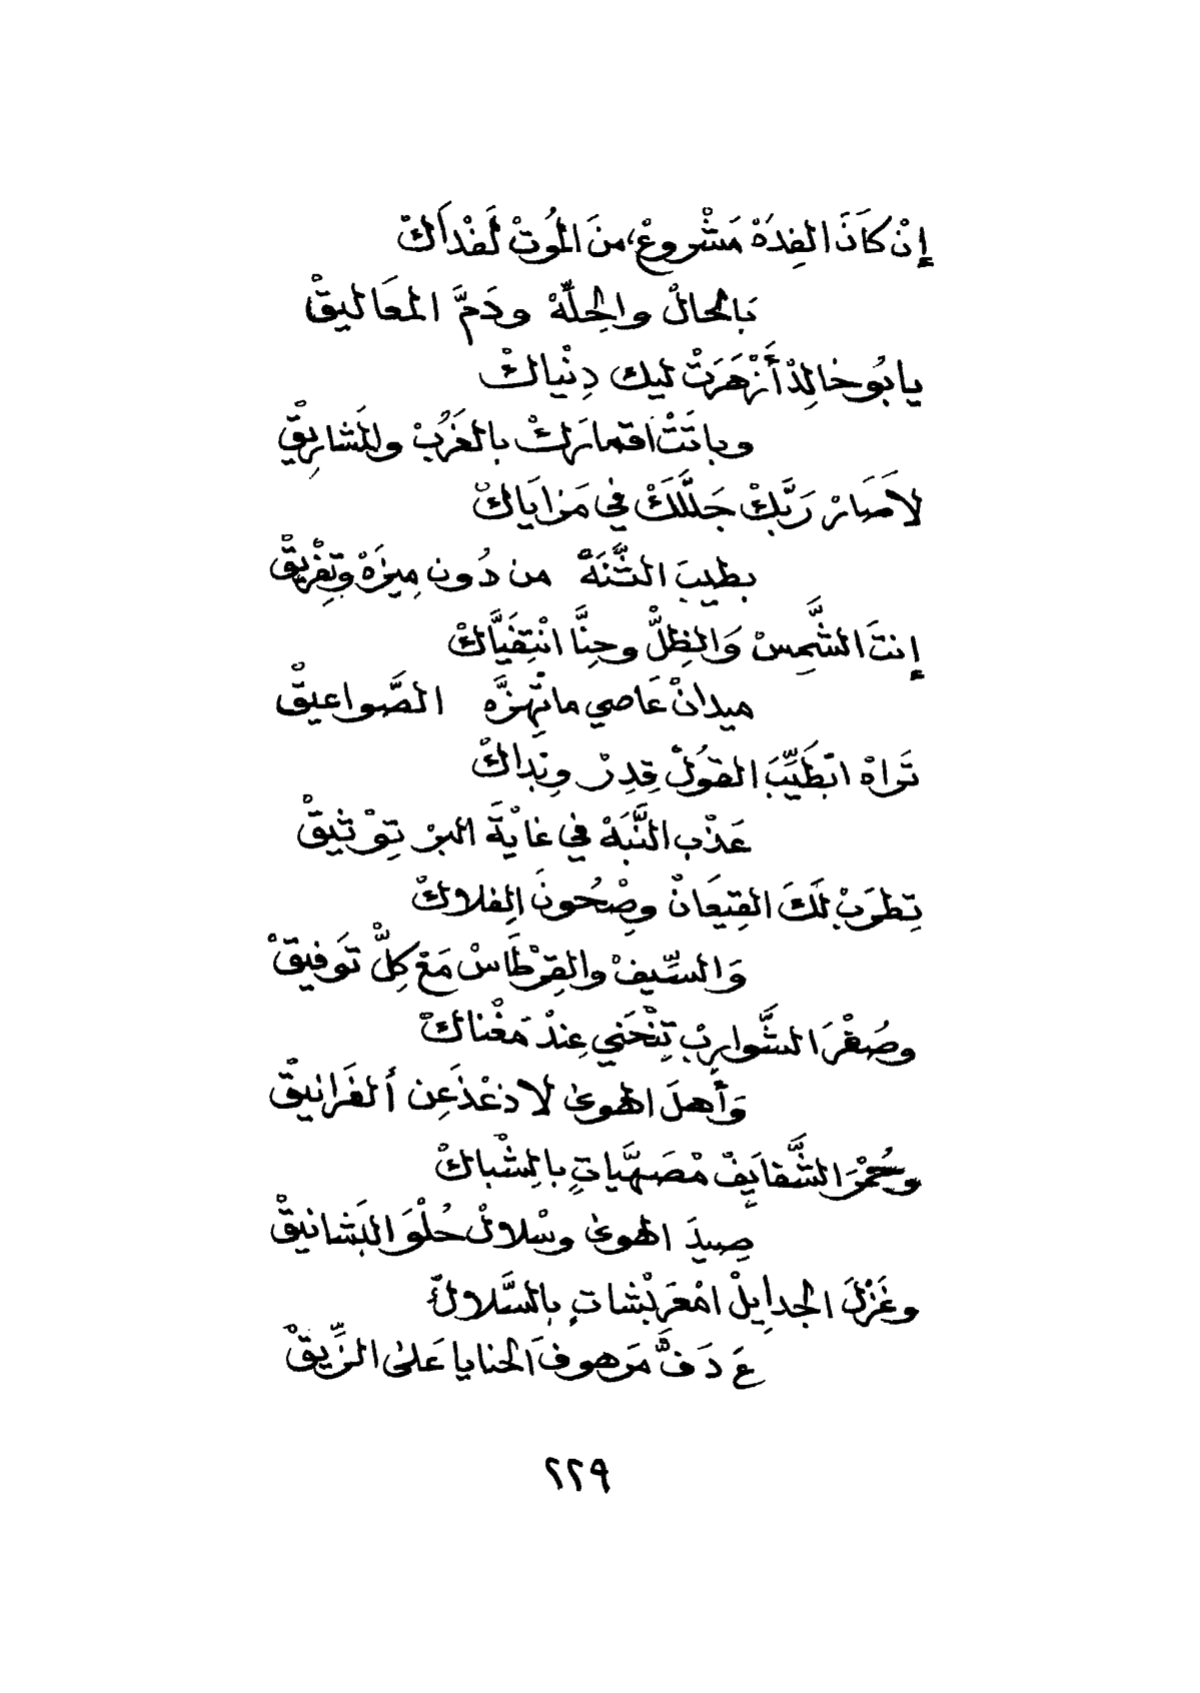 إنْ كَانَ الفِدَهْ مَشْروعْ، منَ المُوتْ لَفْدَاكْ
بَالحالْ والحِلّهْ ودَمَّ المعَاليقْ
يا بُو خالِدْ أَزْهَرَتْ ليك دِنْياكْ
وباتَتْ اقمارَكْ بالغَرْبْ وللَشارِيقْ
لاصَارْ رَبَّكْ جَلَّلَكْ في مَزايَاكْ
بطيبَ الثَّنَهْ من دُون مِيزَهْ وتِفْرِيقْ
إنتَ الشَّمِسْ وَالظِلّْ وحِنَّا انْتِفَيَّاكْ
ميدانْ عَاصي ماتْهِزَّهِ الصَّواعيقْ
تَراهْ اتْطَيِّبَ القوُلْ قِدِرْ وبَداكْ
عَذْب النَّبَهْ في غايْةَ البرْ توْثيقْ
تِطرَبْ لَكَ القِيعَانْ وصْحُونَ الفلاكْ
وَالسِّيفْ والقِرْطَاسْ مَعْ كِلّْ تَوفيقْ
وصُقْرَ الشَّوارِبْ تِنْحَني عِنْدْ مَغْناكْ
وَأَهلَ الهوىٰ لاذعْذَعِن ألغَرانيقْ
وحُمْرَ الشَّفايِفْ مْصَهَّياتٍ بالِشْباكْ
صِيدَ الهوىٰ وسْلالْ حُلْوَ البَشانيقْ
وغَزْلَ الجدايِلْ امْعَرْبْشاتٍ بالسَّلاكْ
عَ دَفّْ مَرهوفَ الحنايا عَلىٰ الزِّيقْ
٢٢٩